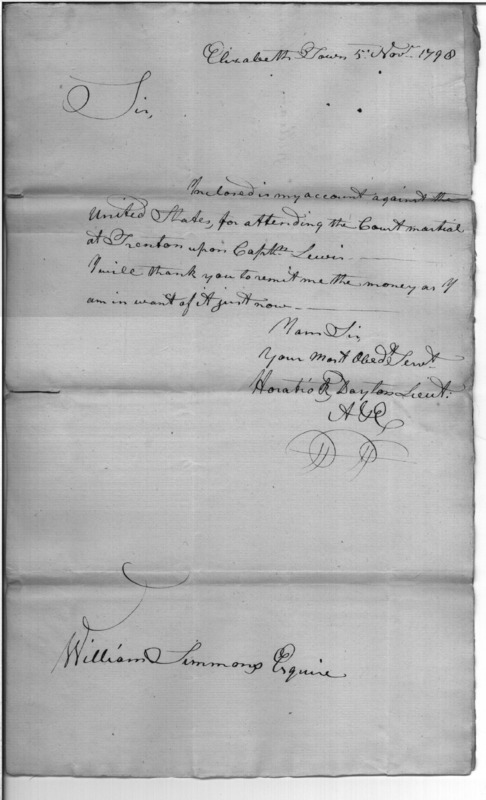 Elizabeth Town 5 Novr. 1798
Sir,
Inclosed is my account against the
United States, for attending the Court martial
at Trenton upon Captn. Lewis
I will thank you to remit me the money as I
am in want of it just now
I am Sir,
Your Most Obedt. Servt.
Horatio R Dayton Lieut.
A & E
William Simmons Esquire